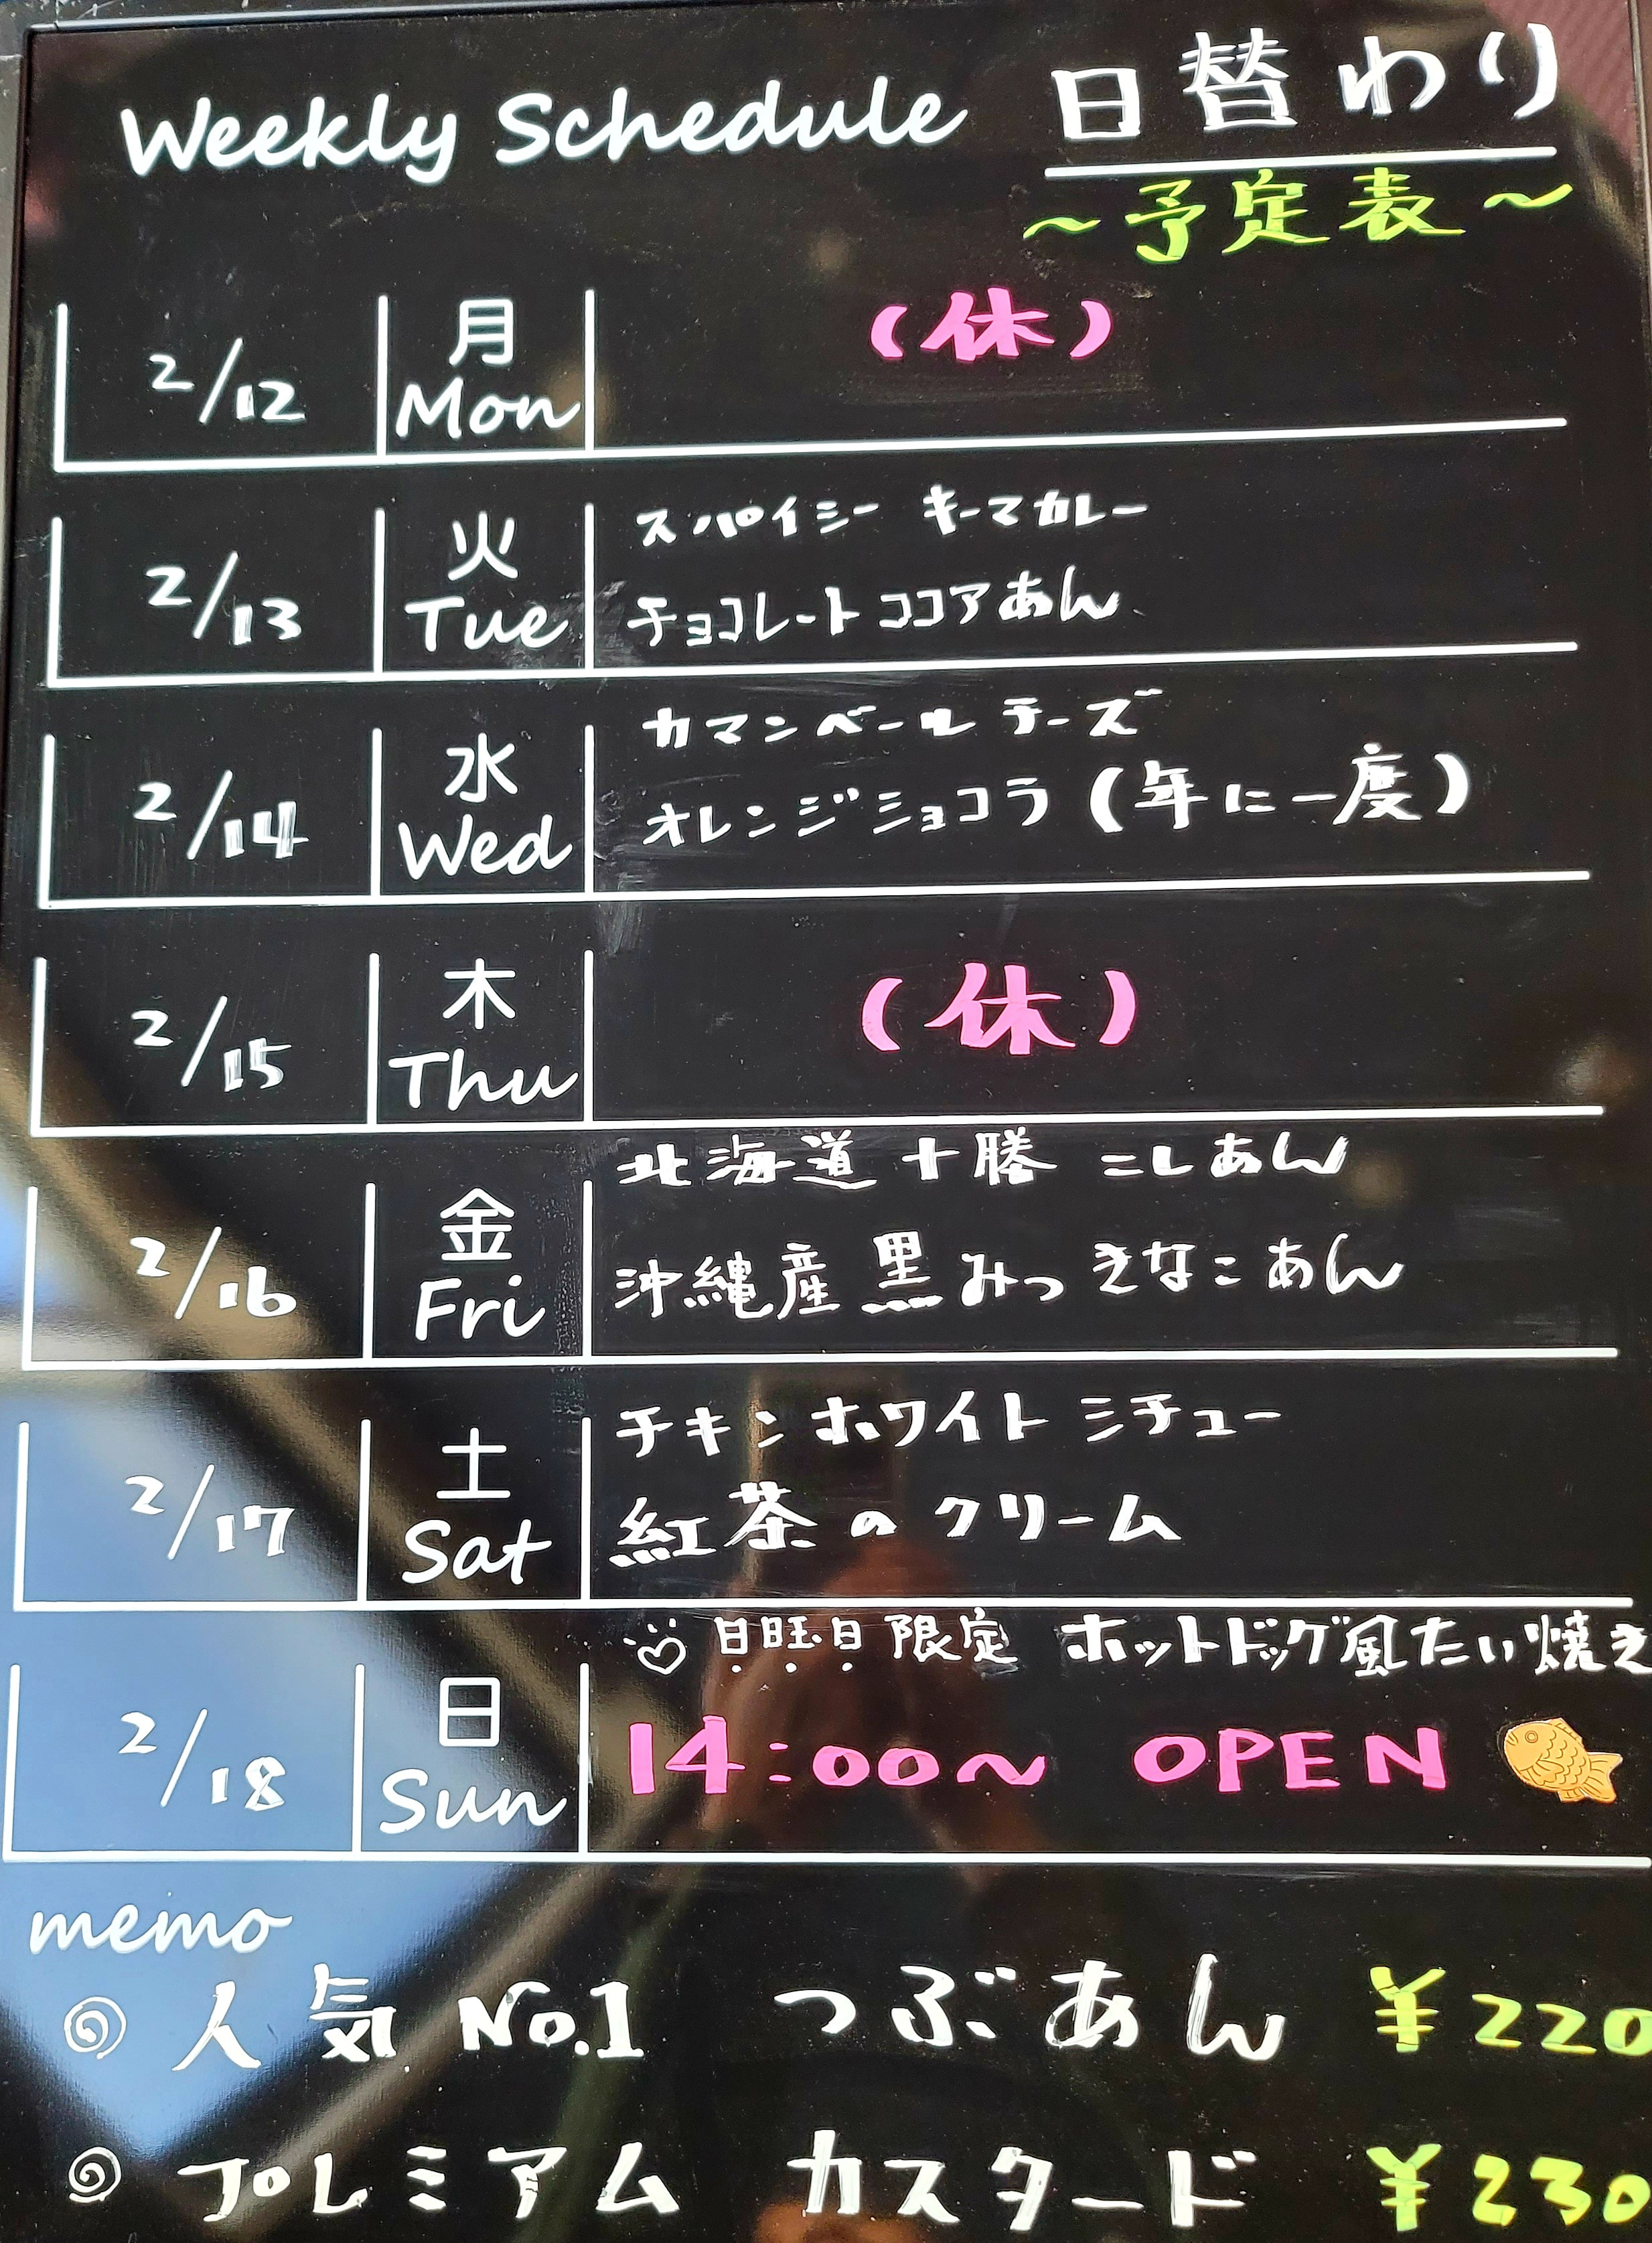 Weekly Schedule 日替わり
～予定表～
2/12 月 Mon (休)
2/13 火 Tue スパイシー キーマカレー
チョコレート ココアあん
2/14 水 Wed カマンベール チーズ
オレンジショコラ (年に一度)
2/15 木 Thu (休)
2/16 金 Fri 北海道 十勝 こしあん
沖縄産 黒みつ きなこ あん
2/17 土 Sat チキン ホワイト シチュー
紅茶の クリーム
2/18 日 Sun 日曜日 限定 ホットドッグ風たい焼き
14:00～ OPEN
memo
人気 No.1 つぶあん ¥220
プレミアム カスタード ¥230